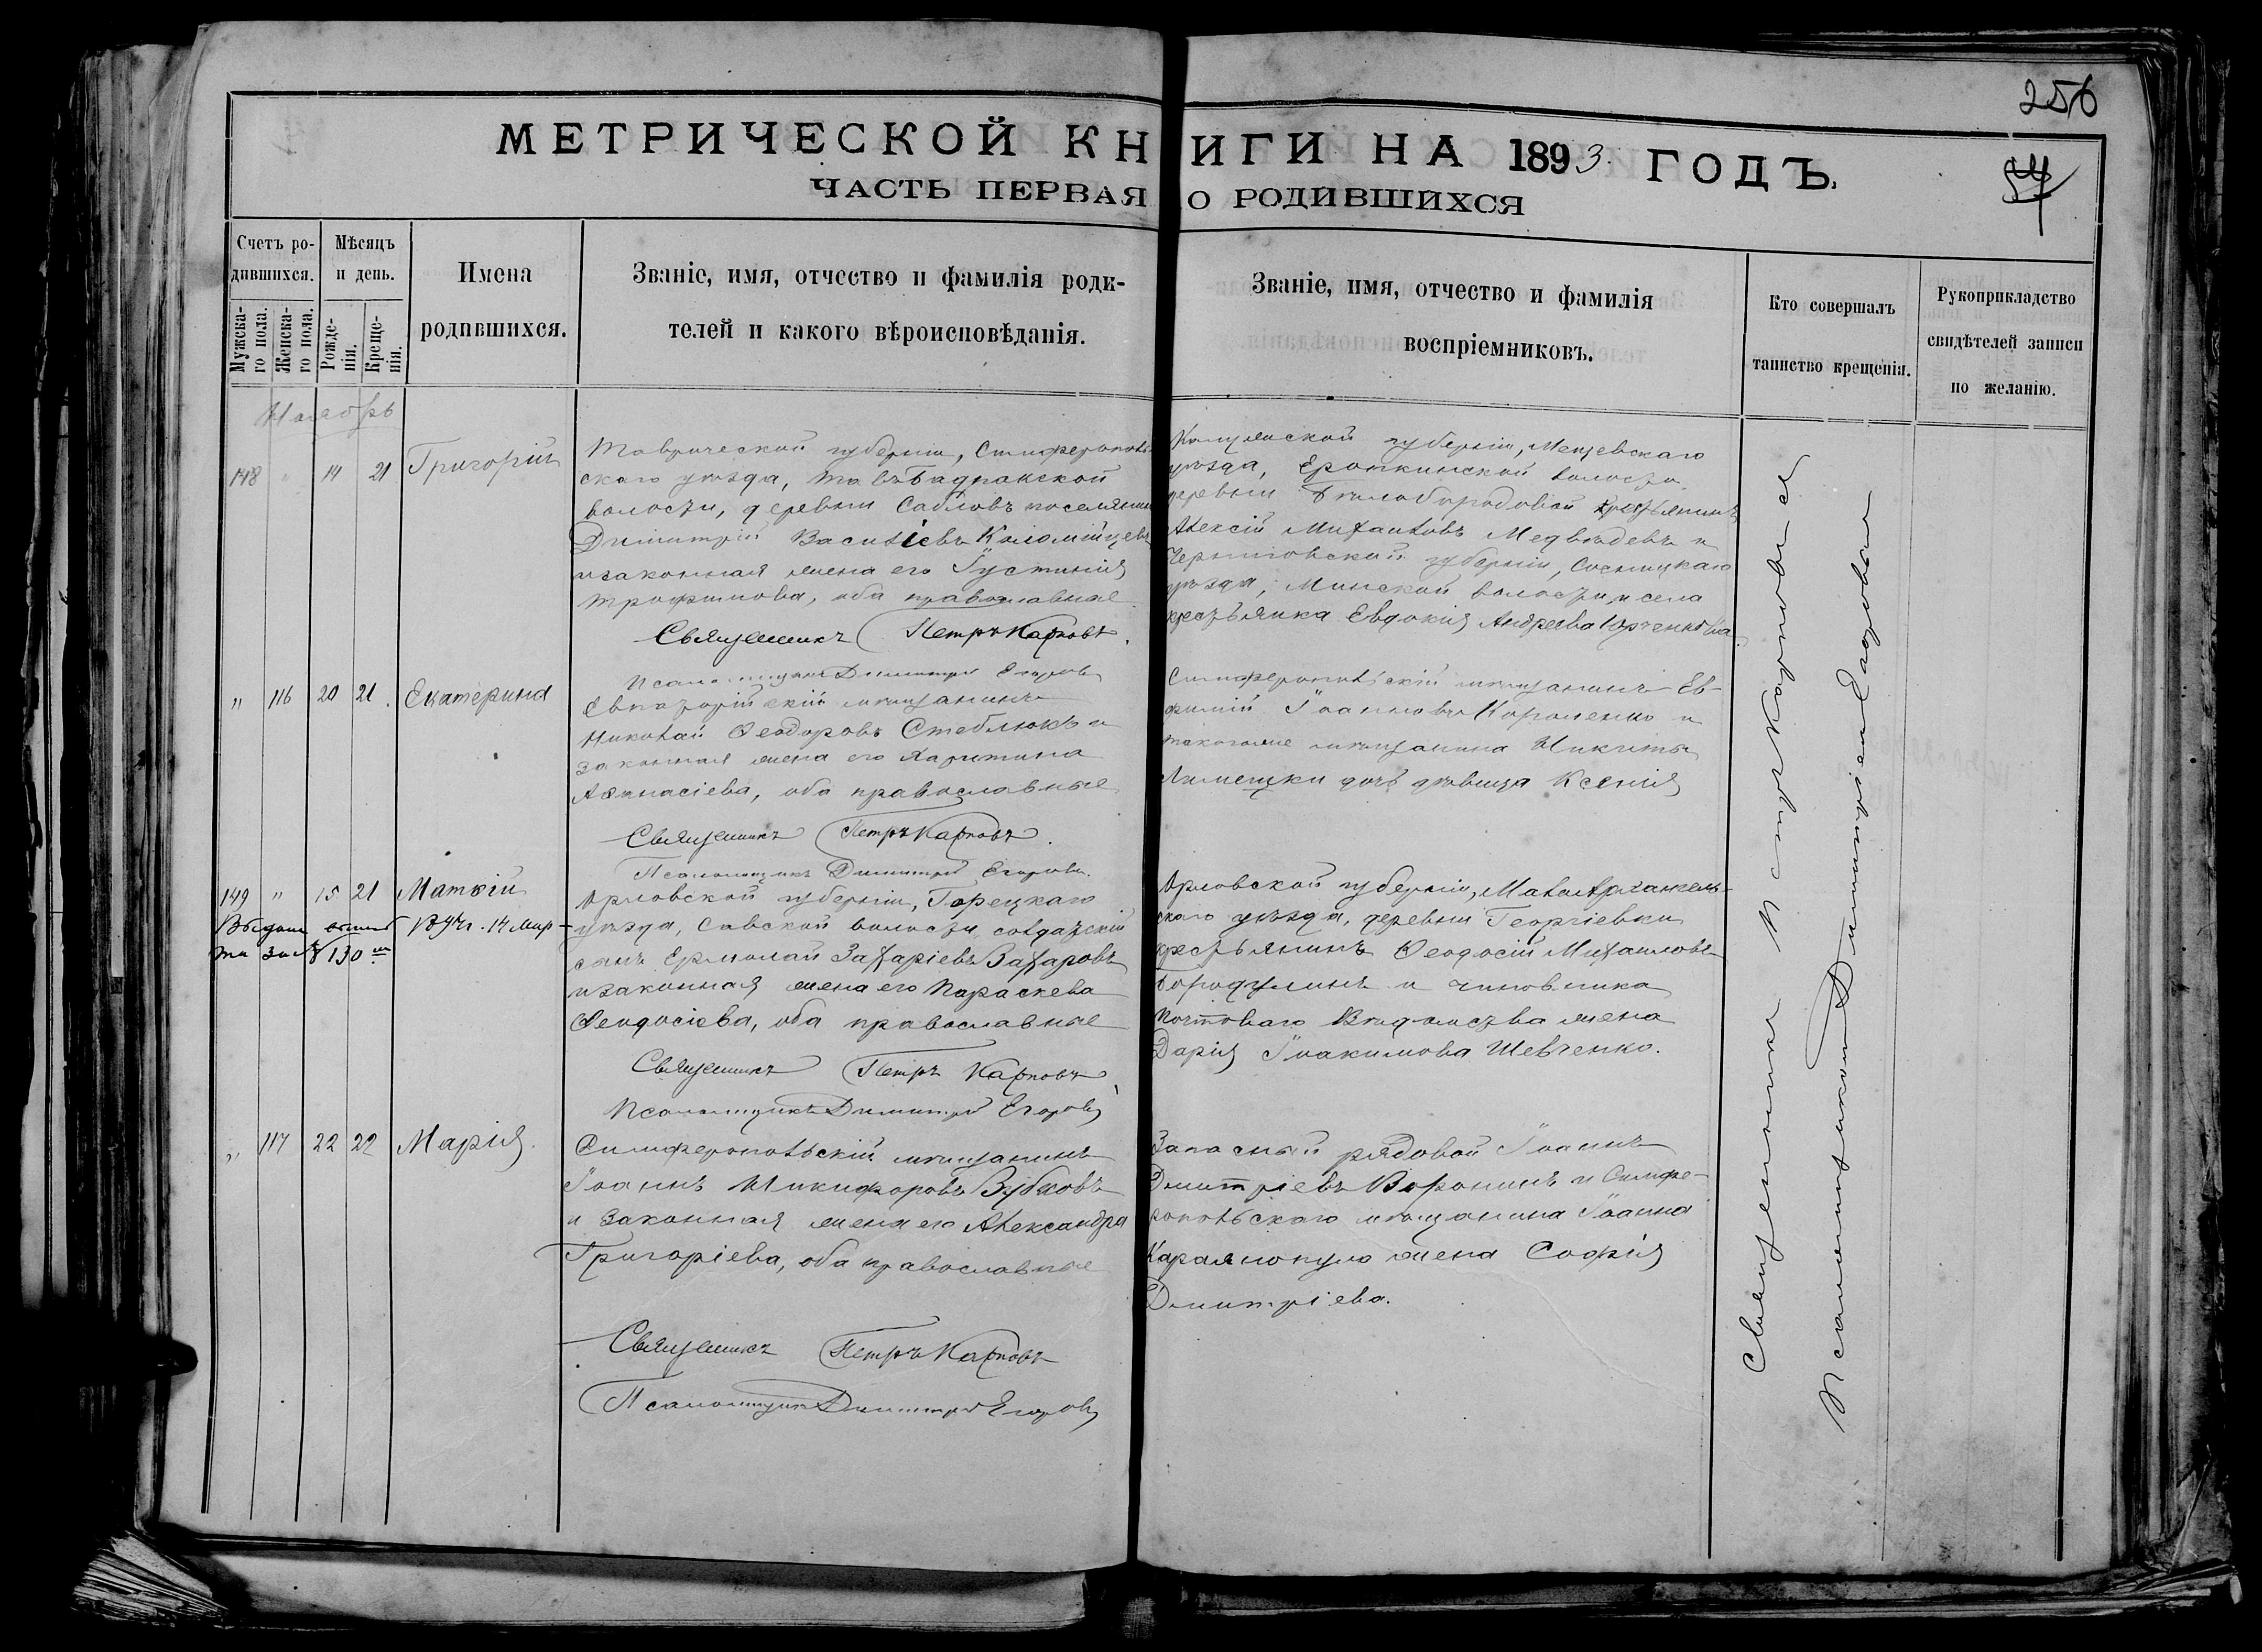 256
МЕТРИЧЕСКОЙ КНИГИ НА 1893 ГОДЪ.
ЧАСТЬ ПЕРВАЯ О РОДИВШИХСЯ
Счетъ родившихся.
Мужска-го пола.
Женска-го пола.
Мѣсяцъ и день.
Рожде-нія.
Креще-нія.
Имена родившихся.
Званіе, имя, отчество и фамилія роди-
телей и какого вѣроисповѣданія.
Званіе, имя, отчество и фамилія
воспріемниковъ.
Кто совершалъ
таинство крещенія.
Рукоприкладство
свидѣтелей записи
по желанію.
Ноябрь
148 " 14 21 Григорій
Таврической губерніи, Симферополь-
скаго уѣзда,
волости, деревни Сабловъ поселянинъ
Димитрій Василіевъ Коломійцевъ
и законная жена его Іустинія
Трофимова, оба православные
Священникъ Петръ Карповъ.
Псаломщикъ Димитрій Егоровъ
губерніи,
уѣзда, Еропкинской волости
деревни Бѣлобородовой крестьянинъ
Алексій Михаиловъ Медвѣдевъ и
Черниговской губерніи, Сосницкаго
уѣзда, Минской волости и села
крестьянка Евдокія Андреева
" 116 20 21 Екатерина
Евпаторійскій мѣщанинъ
Николай Ѳеодоровъ Стеблюкъ и
законная жена его Харитина
Аѳанасіева, оба православные
Священникъ Петръ Карповъ.
Псаломщикъ Димитрій Егоровъ.
Симферопольскій мѣщанинъ Ев-
фимій Іоанновъ Короленко и
такогоже мѣщанина Никиты
дочь дѣвица Ксенія
149 " 15 21 Матѳій
130
Орловской губерніи,
уѣзда, волости, солдатскій
сынъ Ермолай Захаріевъ Захаровъ
и законная жена его Параскева
Ѳеодосіева, оба православные
Священникъ Петръ Карповъ
Псаломщикъ Димитрій Егоровъ
Орловской губерніи, Малоархангель-
скаго уѣзда, деревни Георгіевки
крестьянинъ Ѳеодосій Михаиловъ
Бородулинъ и чиновника
Почтоваго Вѣдомства жена
Дарія Іоакимова Шевченко.
" 117 22 22 Марія.
Симферопольскій мѣщанинъ
Іоаннъ Никифоровъ Зубковъ
и законная жена его Александра
Григоріева, оба православные
Священникъ Петръ Карповъ
Псаломщикъ Димитрій Егоровъ
Запасный рядовой Іоаннъ
Димитріевъ Воронинъ и Симфе-
ропольскаго мѣщанина Іоанна
Караянопуло жена Софія
Димитріева.
Священникъ Петръ Карповъ съ
Псаломщикомъ Димитріемъ Егоровымъ